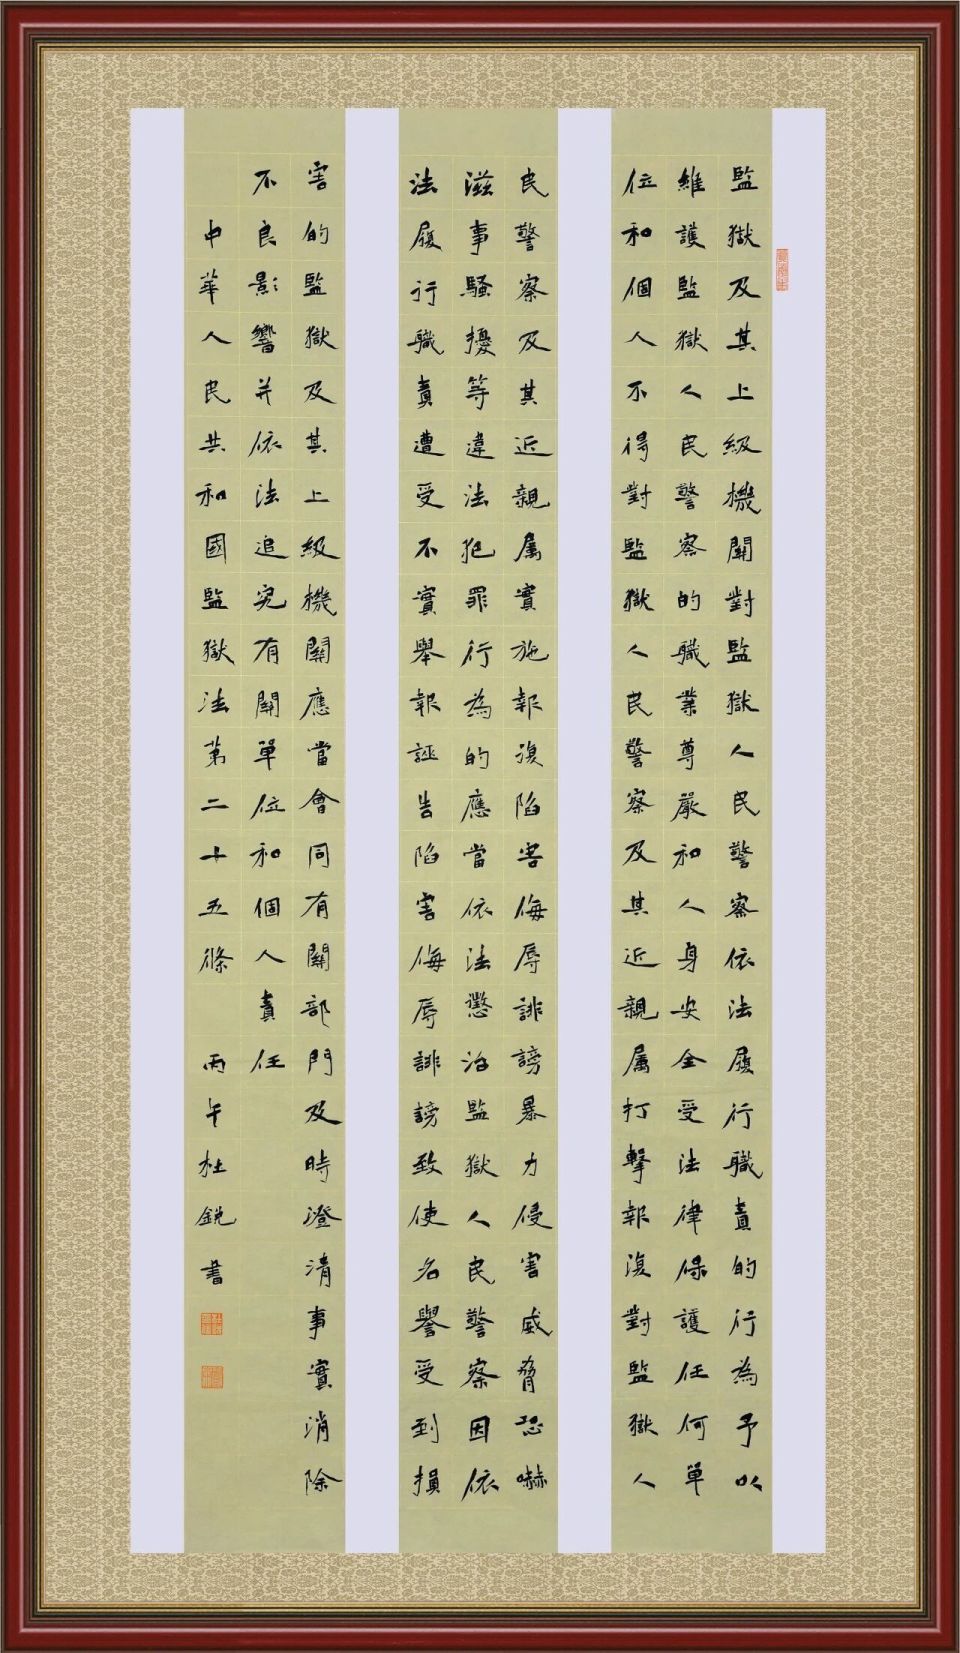 監獄及其上級機關對監獄人民警察依法履行職責的行為予以
維護監獄人民警察的職業尊嚴和人身安全受法律保護任何單
位和個人不得對監獄人民警察及其近親屬打擊報復對監獄人
民警察及其近親屬實施報復陷害侮辱誹謗暴力侵害威脅恐嚇
滋事騷擾等違法犯罪行為的應當依法懲治監獄人民警察因依
法履行職責遭受不實舉報誣告陷害侮辱誹謗致使名譽受到損
害的監獄及其上級機關應當會同有關部門及時澄清事實消除
不良影響并依法追究有關單位和個人責任
中華人民共和國監獄法第二十五條 丙午杜銳書